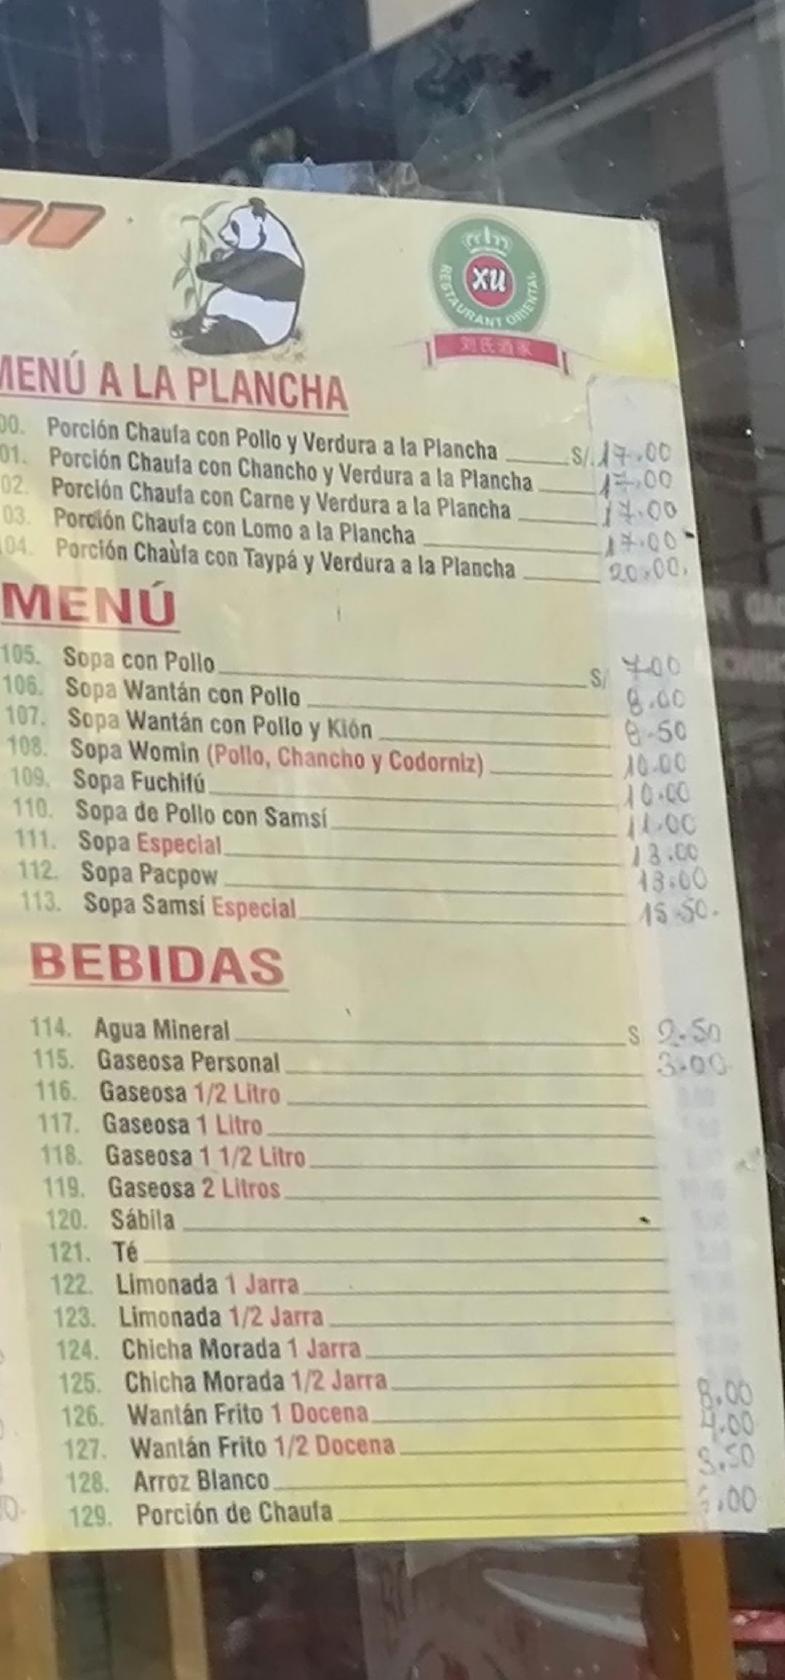 XU
RESTAURANT ORIENTAL
MENÚ A LA PLANCHA
00. Porción Chaufa con Pollo y Verdura a la Plancha S/. 17.00
01. Porción Chaufa con Chancho y Verdura a la Plancha 17.00
02. Porción Chaufa con Carne y Verdura a la Plancha 17.00
03. Porción Chaufa con Lomo a la Plancha 17.00
104. Porción Chaufa con Taypá y Verdura a la Plancha 20.00
MENÚ
105. Sopa con Pollo S/ 7.00
106. Sopa Wantán con Pollo 8.00
107. Sopa Wantán con Pollo y Kión 8.50
108. Sopa Womin (Pollo, Chancho y Codorniz) 10.00
109. Sopa Fuchifú 10.00
110. Sopa de Pollo con Samsí 11.00
111. Sopa Especial 13.00
112. Sopa Pacpow 13.00
113. Sopa Samsí Especial 15.50
BEBIDAS
114. Agua Mineral S 2.50
115. Gaseosa Personal 3.00
116. Gaseosa 1/2 Litro
117. Gaseosa 1 Litro
118. Gaseosa 1 1/2 Litro
119. Gaseosa 2 Litros
120. Sábila
121. Té
122. Limonada 1 Jarra
123. Limonada 1/2 Jarra
124. Chicha Morada 1 Jarra
125. Chicha Morada 1/2 Jarra
126. Wantán Frito 1 Docena 8.00
127. Wantán Frito 1/2 Docena 4.00
128. Arroz Blanco 3.50
129. Porción de Chaufa